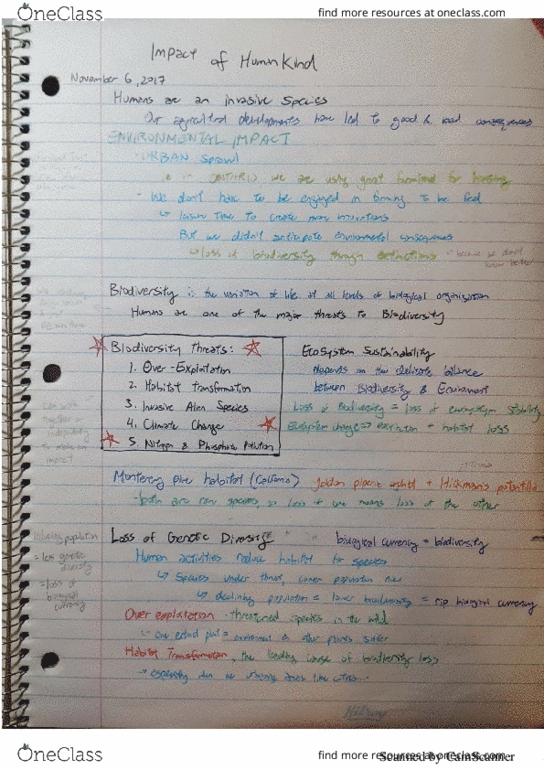 OneClass
find more resources at oneclass.com
Impact of HumanKind
November 6, 2017
Humans are an invasive species
Our agricultural developments have led to good & bad consequences
ENVIRONMENTAL IMPACT
URBAN Sprawl
we are using good farmland for housing
We don't have to be engaged in farming to be fed
↳ leisure time to create more inventions
But we didn't anticipate environmental consequences
↳ loss of biodiversity through extinctions
because we don't know better
Biodiversity is the variation of life at all levels of biological organization
Humans are one of the major threats to Biodiversity
Biodiversity Threats:
1. Over-Exploitation
2. Habitat Transformation
3. Invasive Alien Species
4. Climate Change
5. Nitrogen & Phosphorus Pollution
EcoSystem Sustainability
depends on the delicate balance
between Biodiversity & Environment
Loss of Biodiversity = loss of ecosystem stability
Ecosystem change => extinction + habitat loss
Monterey pine habitat
+ Hickman's potentilla
both are rare species, so loss of one means loss of the other
Loss of Genetic Diversity
biological currency = biodiversity
Human activities reduce habitat for species
↳ Species under threat, population
↳ declining population = lower biodiversity = rip biological currency
Over exploitation - threatened species in the wild
Habitat Transformation, the leading cause of biodiversity loss
declining population
= less genetic diversity
= loss of biological currency
OneClass
find more resources at oneclass.com
Scanned by CamScanner